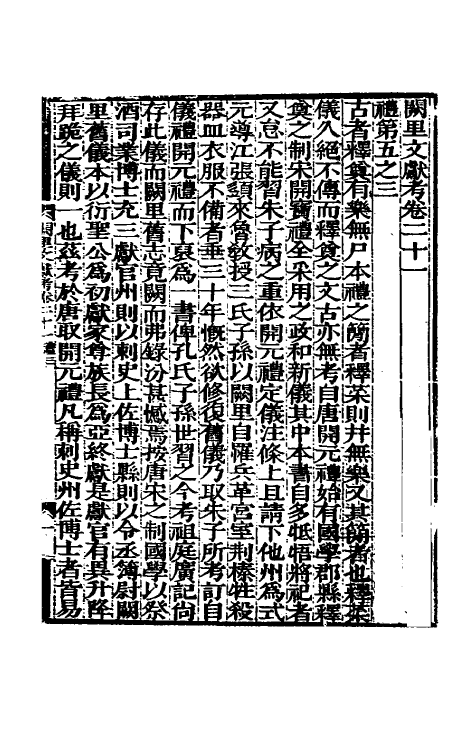 闕里文獻考卷二十一
禮第五之三
古者釋奠有樂無尸本禮之簡者釋菜則并無樂又其簡者也釋菜
儀久絕不傳而釋奠之文古亦無考自唐開元禮始有國學郡縣釋
奠之制宋開寶禮全采用之政和新儀其中本書自多牴牾將祀者
又怠不能習朱子病之重依開元禮定儀注條上且請下他州為式
元導江張𩔰來魯教授三氏子孫以闕里自罹兵革宮室荆榛牲殺
器皿衣服不備者垂三十年慨然欲修復舊儀乃取朱子所考訂自
儀禮開元禮而下裒為一書俾孔氏子孫世習之今考祖庭廣記尚
存此儀而闕里舊志竟闕而弗錄汾甚憾焉按唐宋之制國學以祭
酒司業博士充三獻官州則以刺史上佐博士縣則以令丞簿尉闕
里舊儀本以衍聖公為初獻家尊族長為亞終獻是獻官有異升降
拜跪之儀則一也茲考於唐取開元禮凡稱刺史州佐博士者皆易
闕里文獻考卷二十一 禮三 一